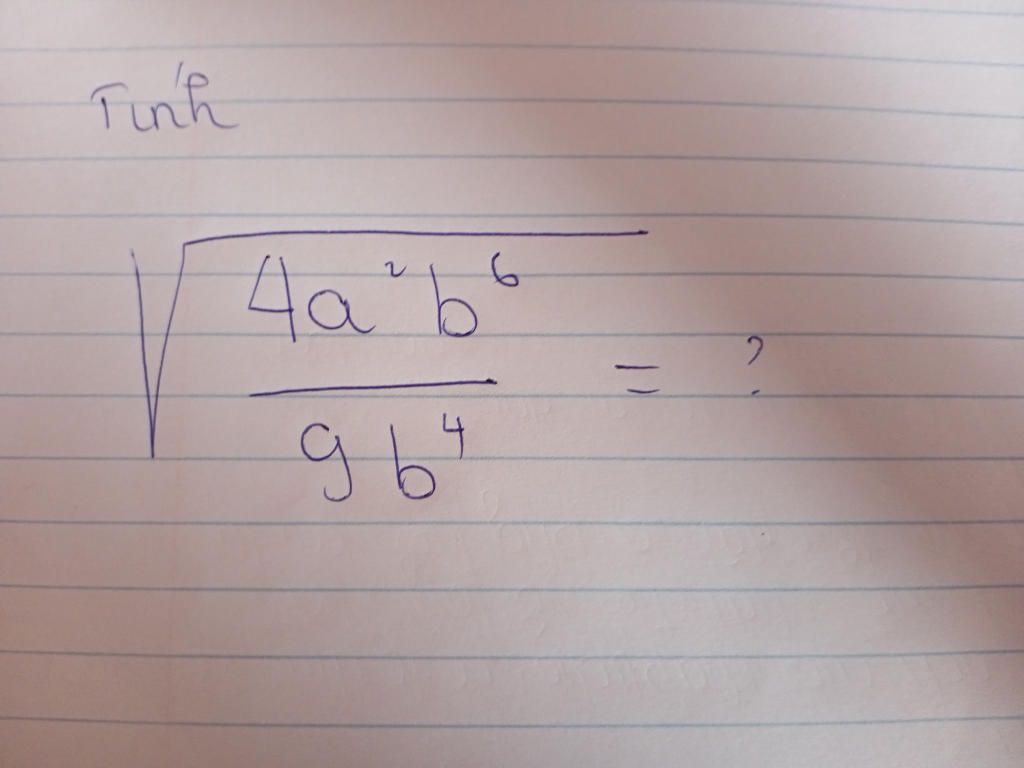 Tính
√(4a²b⁶ / 9b⁴) = ?